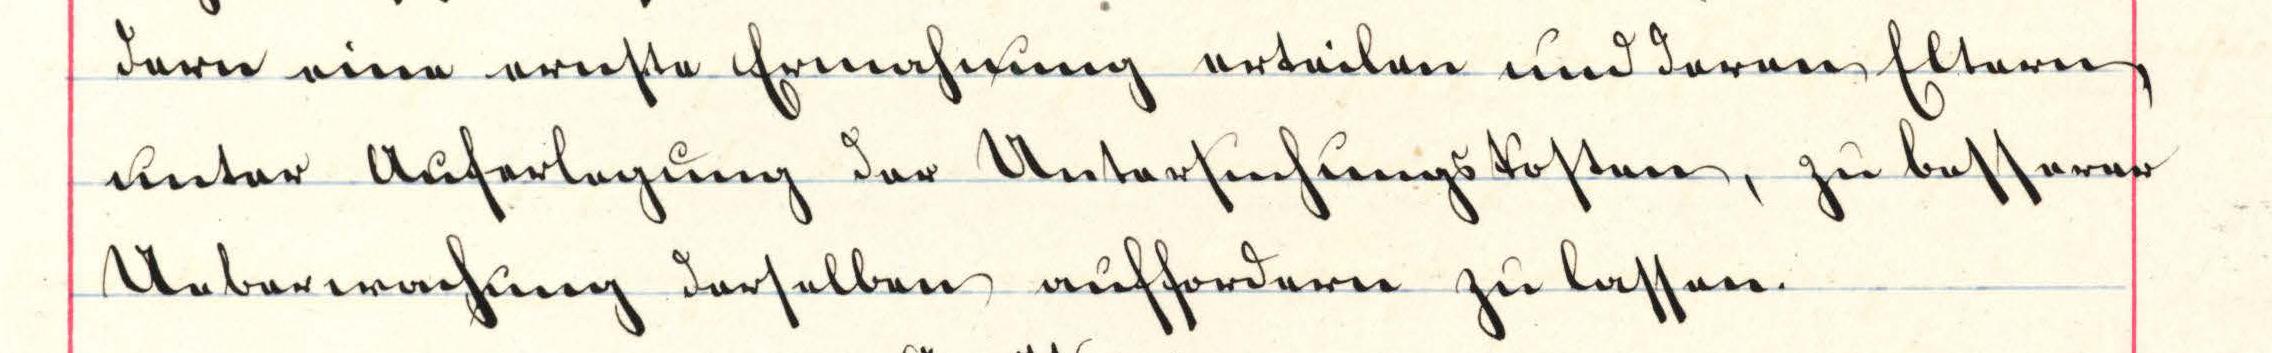 dern eine ernste Ermahnung erteilen und deren Eltern,
unter Auferlegung der Untersuchungskosten, zu besserer
Ueberwachung derselben auffordern zu lassen.